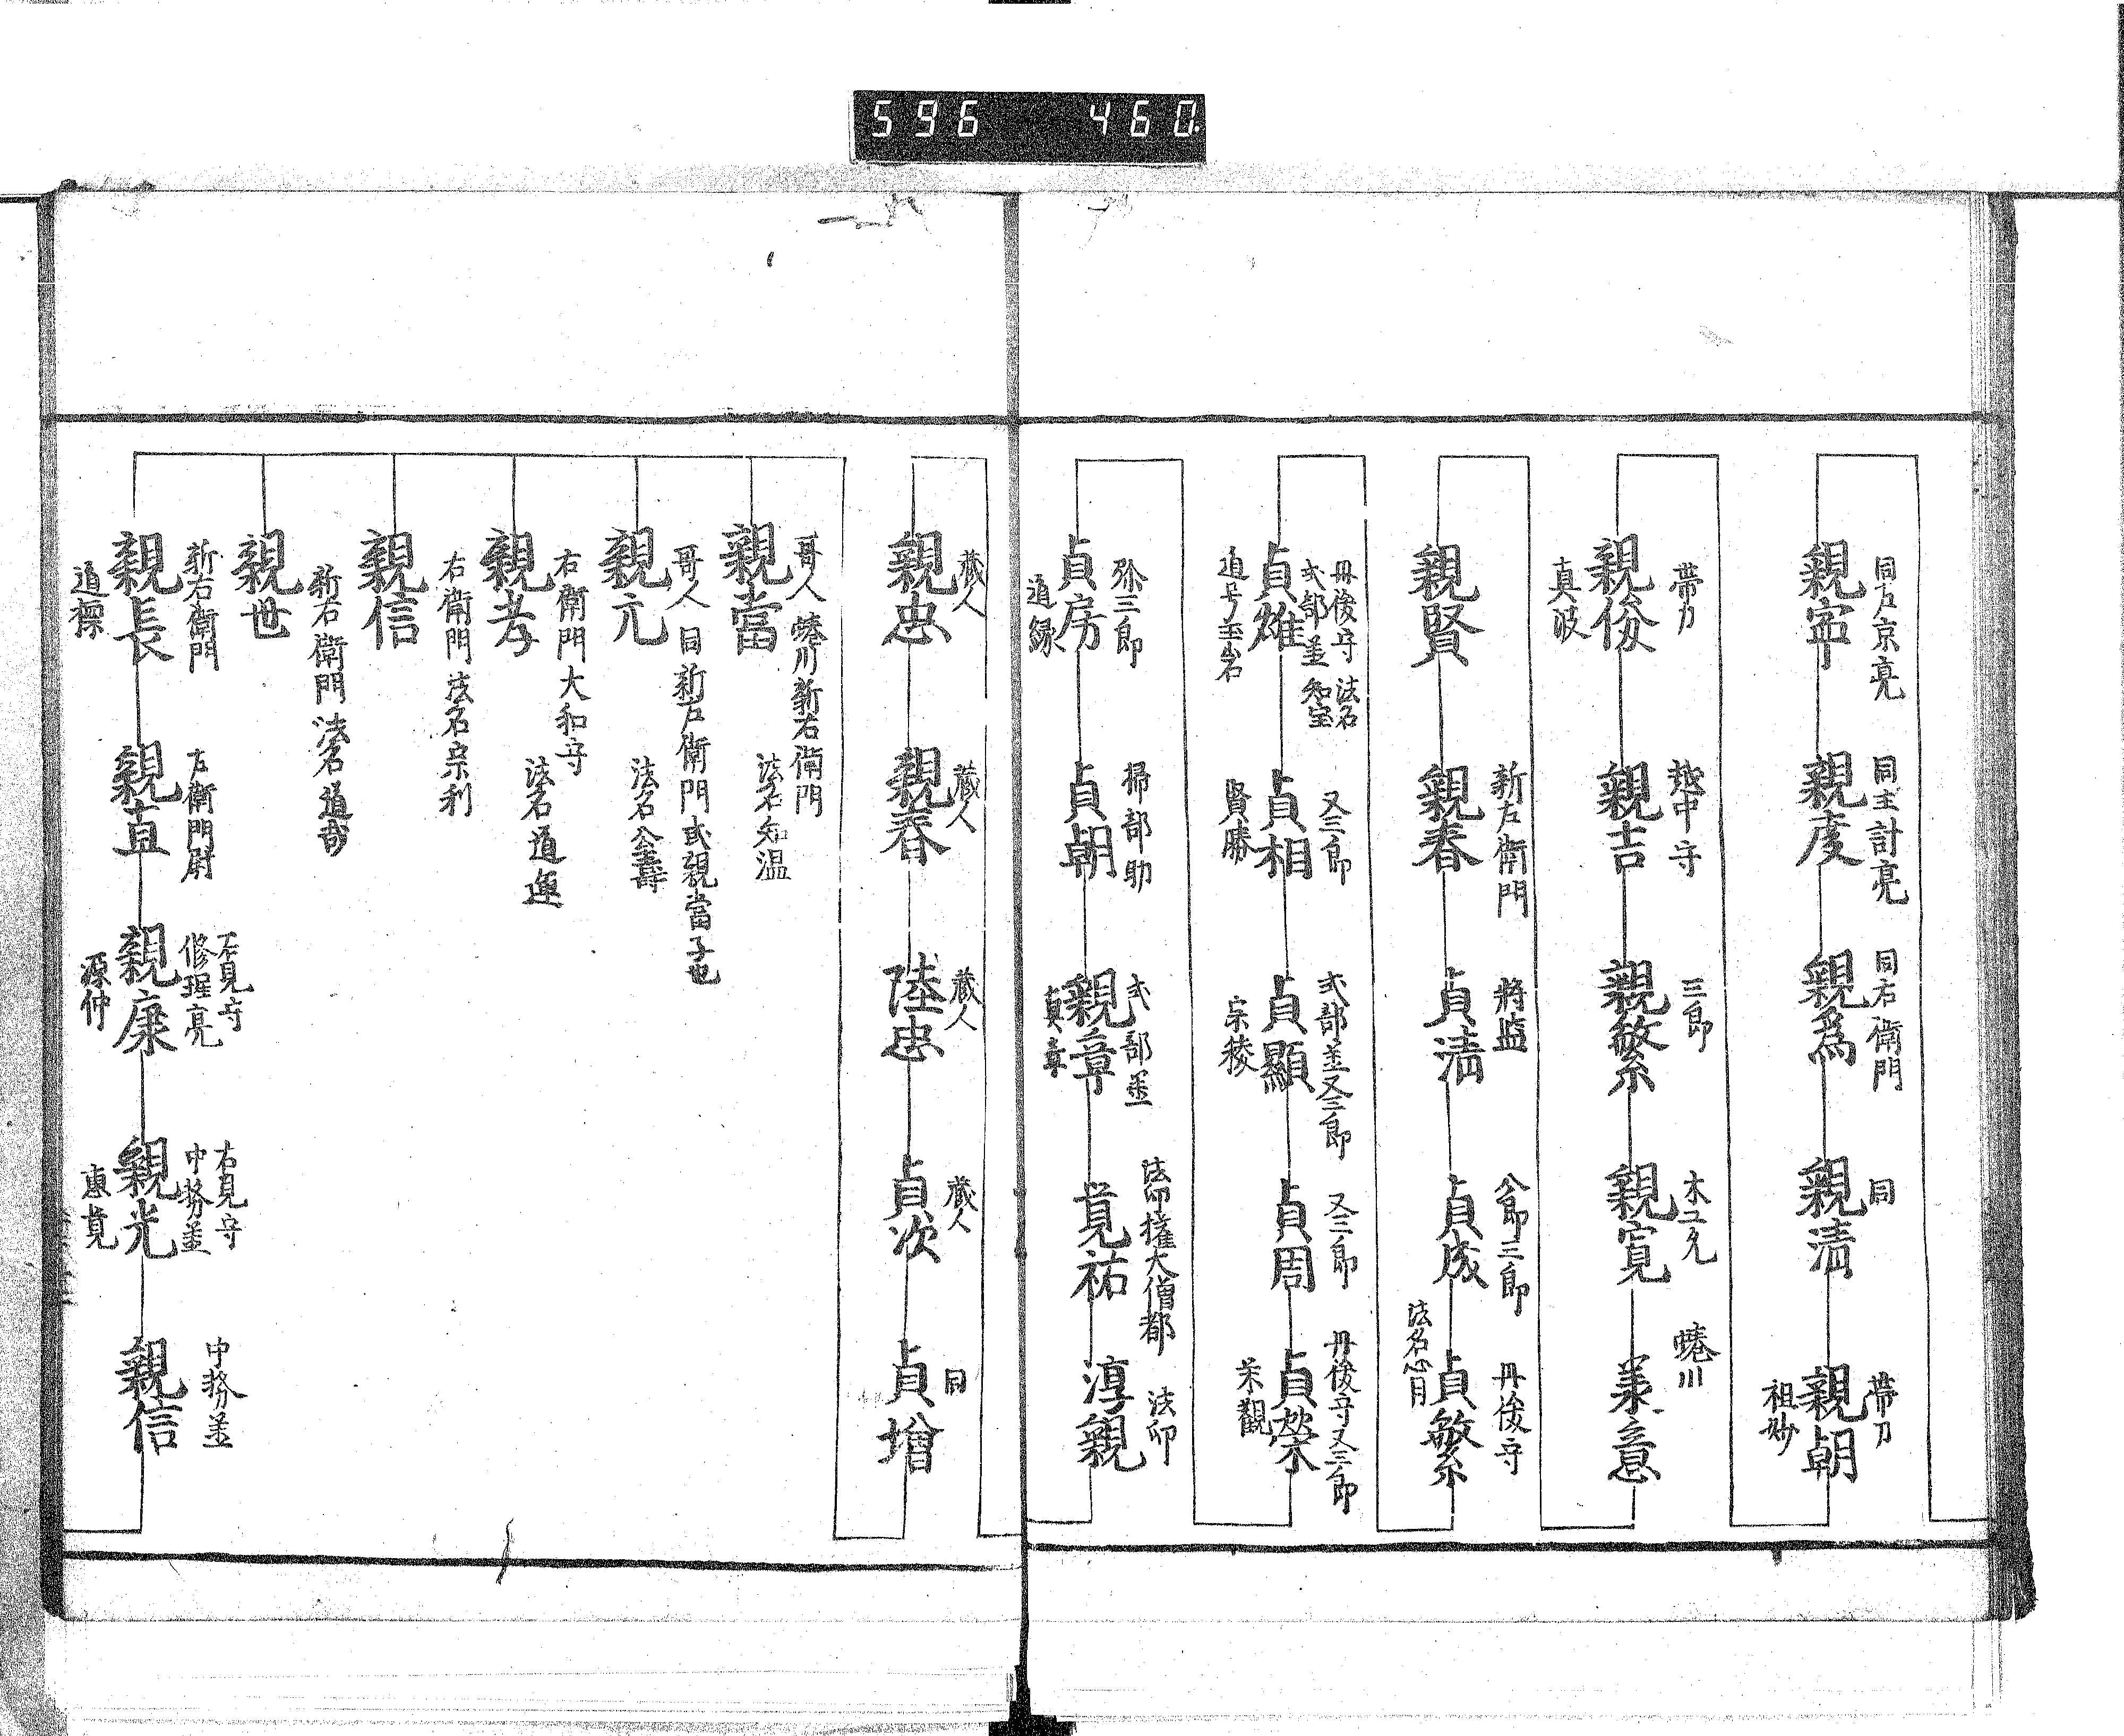 596 460
同左京亮
親宇
同主計亮
親度
同右衛門
親為
同
親清
帯刀
親朝
祖妙
帯刀
親俊
真波
越中守
親吉
三郎
親繁
木工允
親寛
蜷川
美意
親賢
新左衛門
親春
将監
貞清
八郎三郎
貞成
丹後守
貞繁
法名心月
丹後守 法名
式部丞 知玉
貞雄
道号玉岩
又三郎
貞相
賢勝
式部丞又三郎
貞顯
宗稜
又三郎
貞周
丹後守又三郎
貞榮
榮觀
弥三郎
貞房
道縁
掃部助
貞朝
式部丞
親章
真章
法印権大僧都
覚祐
法印
淳親
蔵人
親忠
蔵人
親春
蔵人
陸忠
蔵人
貞次
同
貞増
哥人 蜷川新右衛門
親當
法名知温
哥人 同新左衛門貳親當子也
親元
法名公壽
右衛門大和守
親孝
法名道運
右衛門 法名宗利
親信
新右衛門 法名道哉
親世
新右衛門
親長
道標
左衛門尉
親直
石見守
修理亮
親康
源仲
右見守
中務丞
親光
惠覚
中務丞
親信